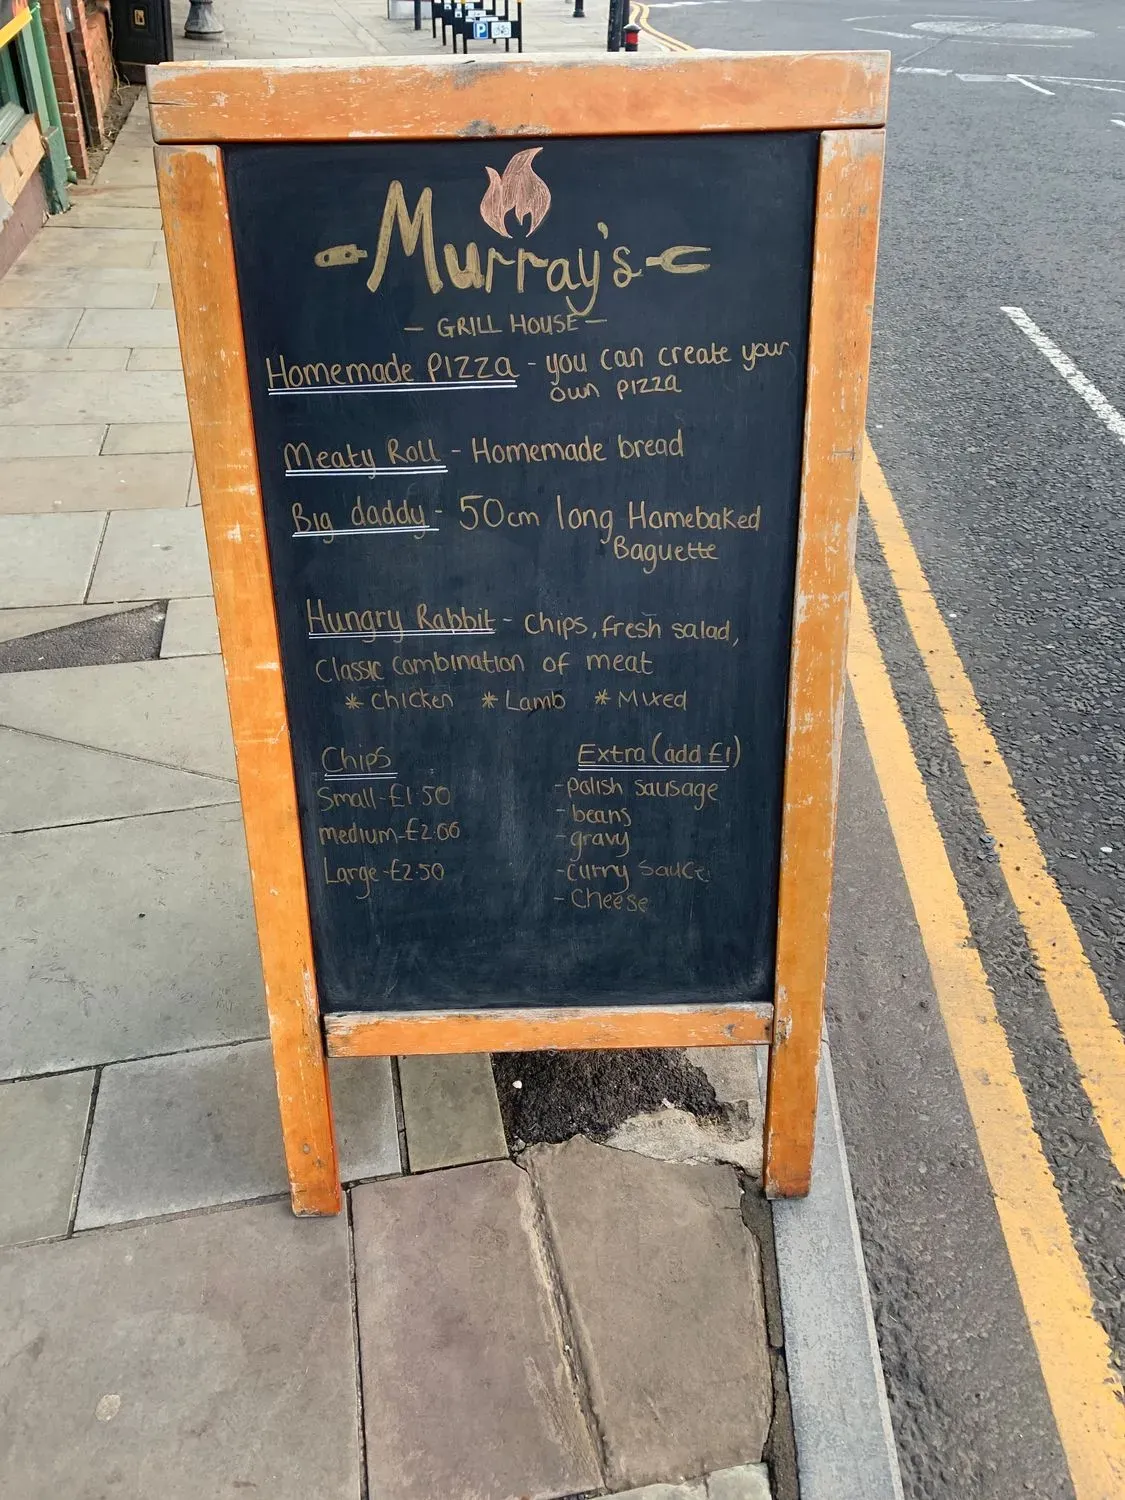 Murray's
- GRILL HOUSE -
Homemade PIZZA - you can create your
own PIZZA
Meaty Roll - Homemade bread
Big daddy - 50cm long Homebaked
Baguette
Hungry Rabbit - Chips, fresh salad,
Classic combination of meat
* Chicken * Lamb * Mixed
Chips
Small-£1.50
medium-£2.00
Large-£2.50
Extra (add £1)
- polish sausage
- beans
- gravy
- curry sauce
- Cheese
P